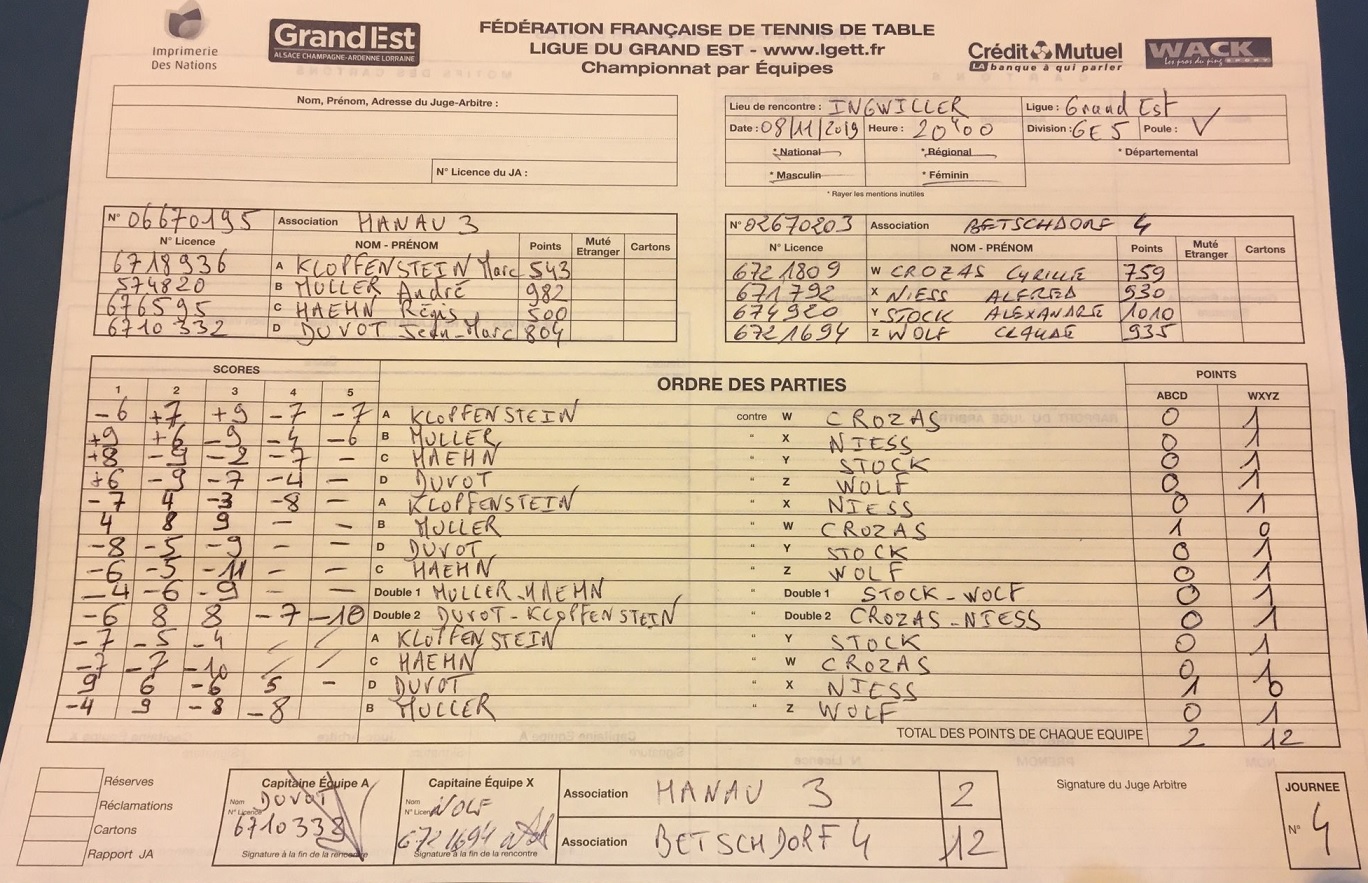 Imprimerie
Des Nations
Grand Est
ALSACE CHAMPAGNE-ARDENNE LORRAINE
FÉDÉRATION FRANÇAISE DE TENNIS DE TABLE
LIGUE DU GRAND EST - www.lgett.fr
Championnat par Équipes
Crédit Mutuel
LA banque à qui parler
WACK
Les pros du ping SPORT
Nom, Prénom, Adresse du Juge-Arbitre :
N° Licence du JA :
Lieu de rencontre : INGWILLER Ligue : Grand Est
Date : 08/11/2019 Heure : 20h00 Division : GE5 Poule : V
* National * Régional * Départemental
* Masculin * Féminin
* Rayer les mentions inutiles
N° 06670195 Association HANAU 3
N° Licence NOM - PRÉNOM Points Muté Etranger Cartons
6718936 A KLOPFENSTEIN Marc 543
574820 B MULLER André 982
676595 C HAEHN Régis 500
6710332 D DUVOT Jean-Marc 804
N° 02670203 Association BETSCHDORF 4
N° Licence NOM - PRÉNOM Points Muté Etranger Cartons
6721809 W CROZAS CYRILLE 759
671792 X NIESS ALFRED 930
674920 Y STOCK ALEXANDRE 1010
6721694 Z WOLF CLAUDE 935
SCORES ORDRE DES PARTIES POINTS
1 2 3 4 5 ABCD WXYZ
-6 +7 +9 -7 -7 A KLOPFENSTEIN contre W CROZAS 0 1
+9 +6 -9 -4 -6 B MULLER " X NIESS 0 1
+8 -9 -2 -7 - C HAEHN " Y STOCK 0 1
+6 -9 -7 -4 - D DUVOT " Z WOLF 0 1
-7 4 -3 -8 - A KLOPFENSTEIN " X NIESS 0 1
4 8 9 - - B MULLER " W CROZAS 1 0
-8 -5 -9 - - D DUVOT " Y STOCK 0 1
-6 -5 -11 - - C HAEHN " Z WOLF 0 1
-4 -6 -9 - - Double 1 MULLER-HAEHN " Double 1 STOCK-WOLF 0 1
-6 8 8 -7 -10 Double 2 DUVOT-KLOPFENSTEIN " Double 2 CROZAS-NIESS 0 1
-7 -5 -4 / / A KLOPFENSTEIN " Y STOCK 0 1
-7 -7 -10 / / C HAEHN " W CROZAS 0 1
9 6 -6 5 - D DUVOT " X NIESS 1 0
-4 9 -8 -8 B MULLER " Z WOLF 0 1
TOTAL DES POINTS DE CHAQUE EQUIPE 2 12
Réserves
Réclamations
Cartons
Rapport JA
Capitaine Équipe A
Nom DUVOT
N° Licence 6710332
Signature à la fin de la rencontre
Capitaine Équipe X
Nom WOLF
N° Licence 6721694
Signature à la fin de la rencontre
Association HANAU 3 2
Association BETSCHDORF 4 12
Signature du Juge Arbitre
JOURNEE
N° 4